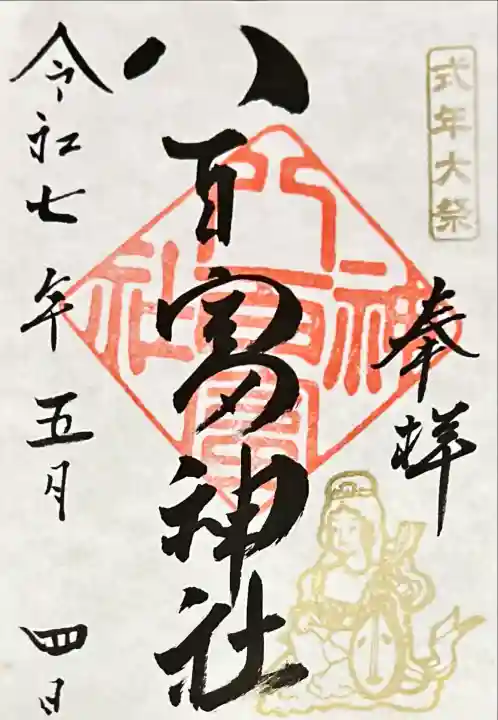 式年大祭
奉拝
八百富神社
八百富
神社
令和七年五月四日